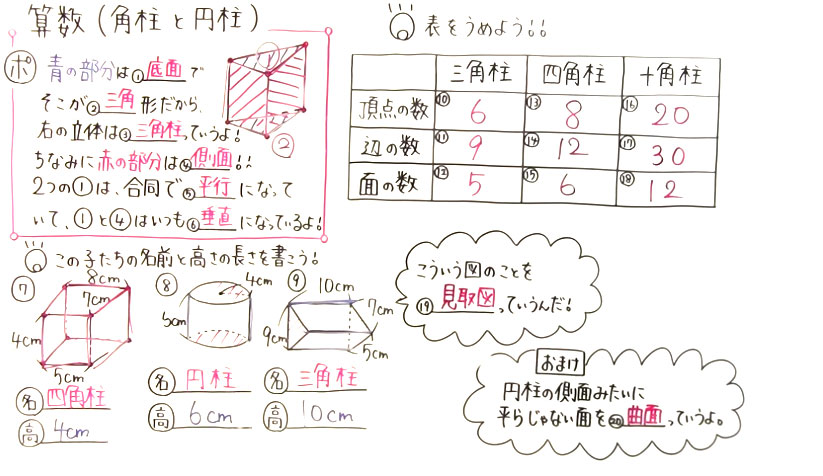 算数（角柱と円柱）
ポ 青の部分は①底面で
そこが②三角形だから、
右の立体は③三角柱っていうよ！
ちなみに赤の部分は④側面！！
2つの①は、合同で⑤平行になって
いて、①と④はいつも⑥垂直になっているよ！
②
表をうめよう！！
三角柱 四角柱 十角柱
頂点の数 ⑩6 ⑬8 ⑯20
辺の数 ⑪9 ⑭12 ⑰30
面の数 ⑫5 ⑮6 ⑱12
この子たちの名前と高さの長さを書こう！
⑦ 8cm 7cm 4cm 5cm
名 四角柱
高 4cm
⑧ 4cm 6cm
名 円柱
高 6cm
⑨ 10cm 7cm 9cm 5cm
名 三角柱
高 10cm
こういう図のことを
⑲見取図っていうんだ！
おまけ
円柱の側面みたいに
平らじゃない面を⑳曲面っていうよ。